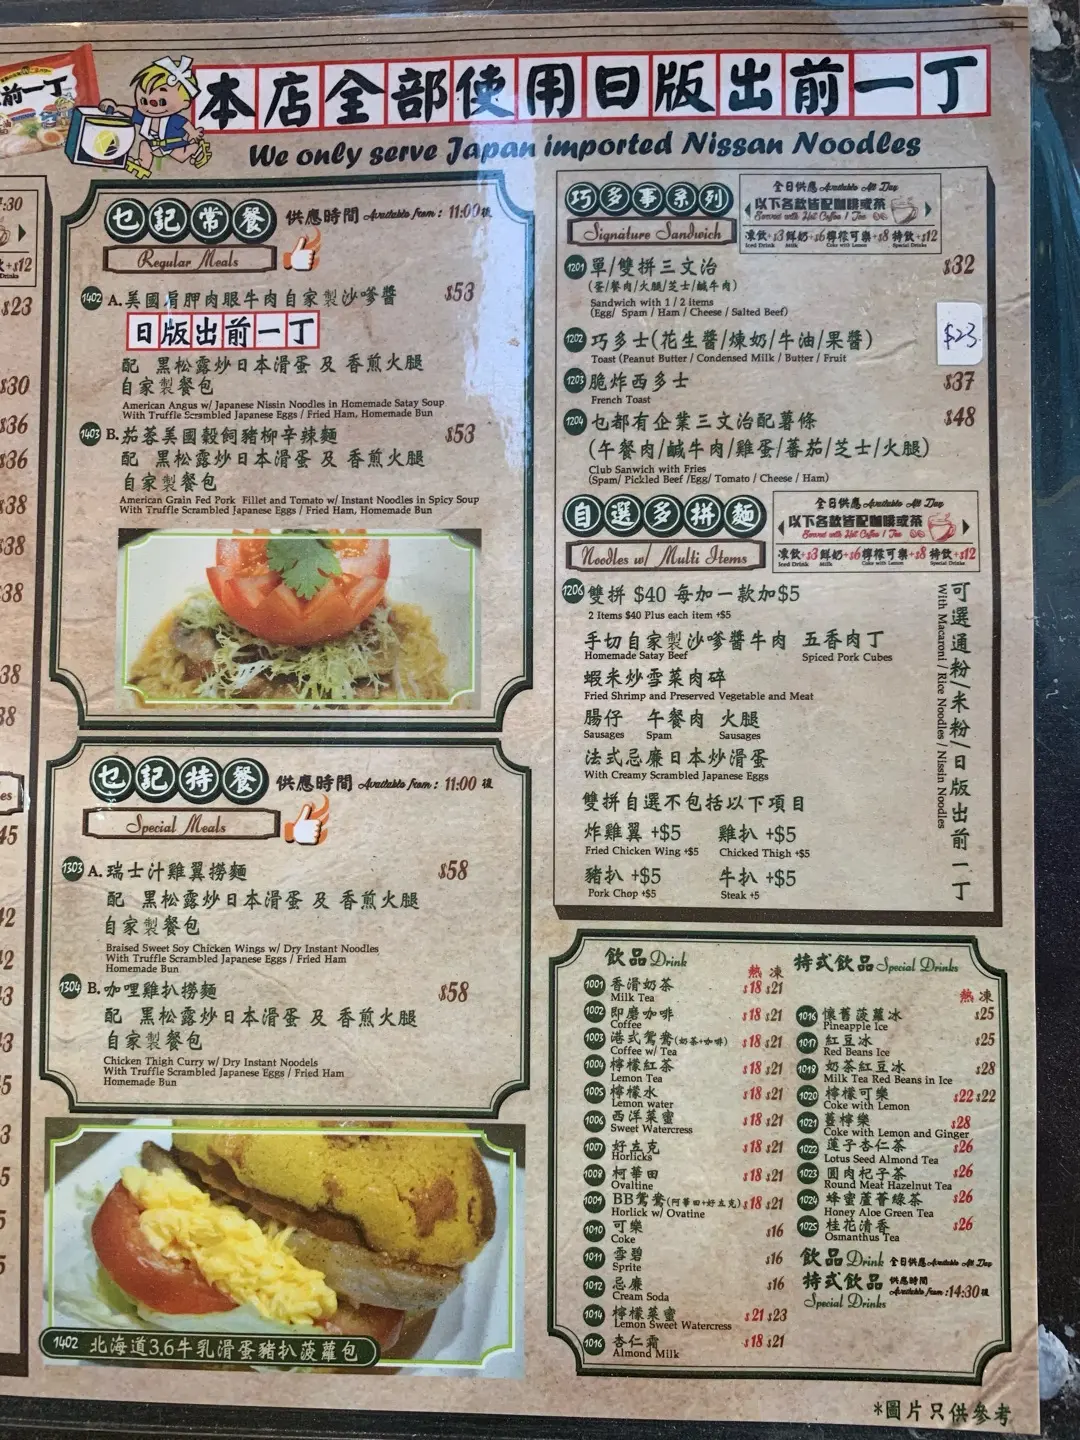 前一丁
本店全部使用日版出前一丁
We only serve Japan imported Nissan Noodles
:30
+$12
Drinks
$23
$30
$36
$36
$38
$38
$38
$38
$38
es
45
42
42
43
43
45
43
45
5
5
乜記常餐 供應時間 Available from: 11:00後
Regular Meals
1402 A.美國肩胛肉眼牛肉自家製沙嗲醬 $53
日版出前一丁
配 黑松露炒日本滑蛋 及 香煎火腿
自家製餐包
American Angus w/ Japanese Nissin Noodles in Homemade Satay Soup
With Truffle Scrambled Japanese Eggs / Fried Ham, Homemade Bun
1403 B.茄蓉美國穀飼豬柳辛辣麵 $53
配 黑松露炒日本滑蛋 及 香煎火腿
自家製餐包
American Grain Fed Pork Fillet and Tomato w/ Instant Noodles in Spicy Soup
With Truffle Scrambled Japanese Eggs / Fried Ham, Homemade Bun
乜記特餐 供應時間 Available from: 11:00 後
Special Meals
1303 A.瑞士汁雞翼撈麵 $58
配 黑松露炒日本滑蛋 及 香煎火腿
自家製餐包
Braised Sweet Soy Chicken Wings w/ Dry Instant Noodles
With Truffle Scrambled Japanese Eggs / Fried Ham
Homemade Bun
1304 B.咖哩雞扒撈麵 $58
配 黑松露炒日本滑蛋 及 香煎火腿
自家製餐包
Chicken Thigh Curry w/ Dry Instant Noodels
With Truffle Scrambled Japanese Eggs / Fried Ham
Homemade Bun
1402 北海道3.6牛乳滑蛋豬扒菠蘿包
巧多事系列
Signature Sandwich
全日供應 Available All Day
以下各款皆配咖啡或茶
Served with Hot Coffee / Tea
凍飲+$3 鮮奶+$6 檸檬可樂+$8 特飲+$12
Iced Drink Milk Coke with Lemon Special Drinks
1201 單/雙拼三文治 $32
(蛋/餐肉/火腿/芝士/鹹牛肉)
Sandwich with 1 / 2 items
(Egg/ Spam / Ham / Cheese / Salted Beef)
1202 巧多士(花生醬/煉奶/牛油/果醬) $23
Toast (Peanut Butter / Condensed Milk / Butter / Fruit
1203 脆炸西多士 $37
French Toast
1204 乜都有企業三文治配薯條 $48
(午餐肉/鹹牛肉/雞蛋/蕃茄/芝士/火腿)
Club Sanwich with Fries
(Spam/ Pickled Beef /Egg/ Tomato / Cheese / Ham)
自選多拼麵
Noodles w/ Multi Items
全日供應 Available All Day
以下各款皆配咖啡或茶
Served with Hot Coffee / Tea
凍飲+$3 鮮奶+$6 檸檬可樂+$8 特飲+$12
Iced Drink Milk Coke with Lemon Special Drinks
1206 雙拼 $40 每加一款加$5
2 Items $40 Plus each item +$5
手切自家製沙嗲醬牛肉 五香肉丁
Homemade Satay Beef Spiced Pork Cubes
蝦米炒雪菜肉碎
Fried Shrimp and Preserved Vegetable and Meat
腸仔 午餐肉 火腿
Sausages Spam Sausages
法式忌廉日本炒滑蛋
With Creamy Scrambled Japanese Eggs
雙拼自選不包括以下項目
炸雞翼 +$5 雞扒 +$5
Fried Chicken Wing +$5 Chicked Thigh +$5
豬扒 +$5 牛扒 +$5
Pork Chop +$5 Steak +5
可選通粉/米粉/日版出前一丁
With Macaroni / Rice Noodles / Nissin Noodles
飲品 Drink
熱 凍
1001 香滑奶茶 $18 $21
Milk Tea
1002 即磨咖啡 $18 $21
Coffee
1003 港式鴛鴦(奶茶+咖啡) $18 $21
Coffee w/ Tea
1004 檸檬紅茶 $18 $21
Lemon Tea
1005 檸檬水 $18 $21
Lemon water
1006 西洋菜蜜 $18 $21
Sweet Watercress
1007 好立克 $18 $21
Horlicks
1008 柯華田 $18 $21
Ovaltine
1009 BB鴛鴦(阿華田+好立克) $18 $21
Horlick w/ Ovatine
1010 可樂 $16
Coke
1011 雪碧 $16
Sprite
1012 忌廉 $16
Cream Soda
1014 檸檬菜蜜 $21 $23
Lemon Sweet Watercress
1016 杏仁霜 $18 $21
Almond Milk
特式飲品 Special Drinks
熱 凍
1016 懷舊菠蘿冰 $25
Pineapple Ice
1017 紅豆冰 $25
Red Beans Ice
1018 奶茶紅豆冰 $28
Milk Tea Red Beans in Ice
1020 檸檬可樂 $22 $22
Coke with Lemon
1021 薑檸樂 $28
Coke with Lemon and Ginger
1022 蓮子杏仁茶 $26
Lotus Seed Almond Tea
1023 圓肉杞子茶 $26
Round Meat Hazelnut Tea
1024 蜂蜜蘆薈綠茶 $26
Honey Aloe Green Tea
1025 桂花清香 $26
Osmanthus Tea
飲品 Drink 全日供應 Available All Day
特式飲品 供應時間
Special Drinks Available from :14:30後
*圖片只供參考